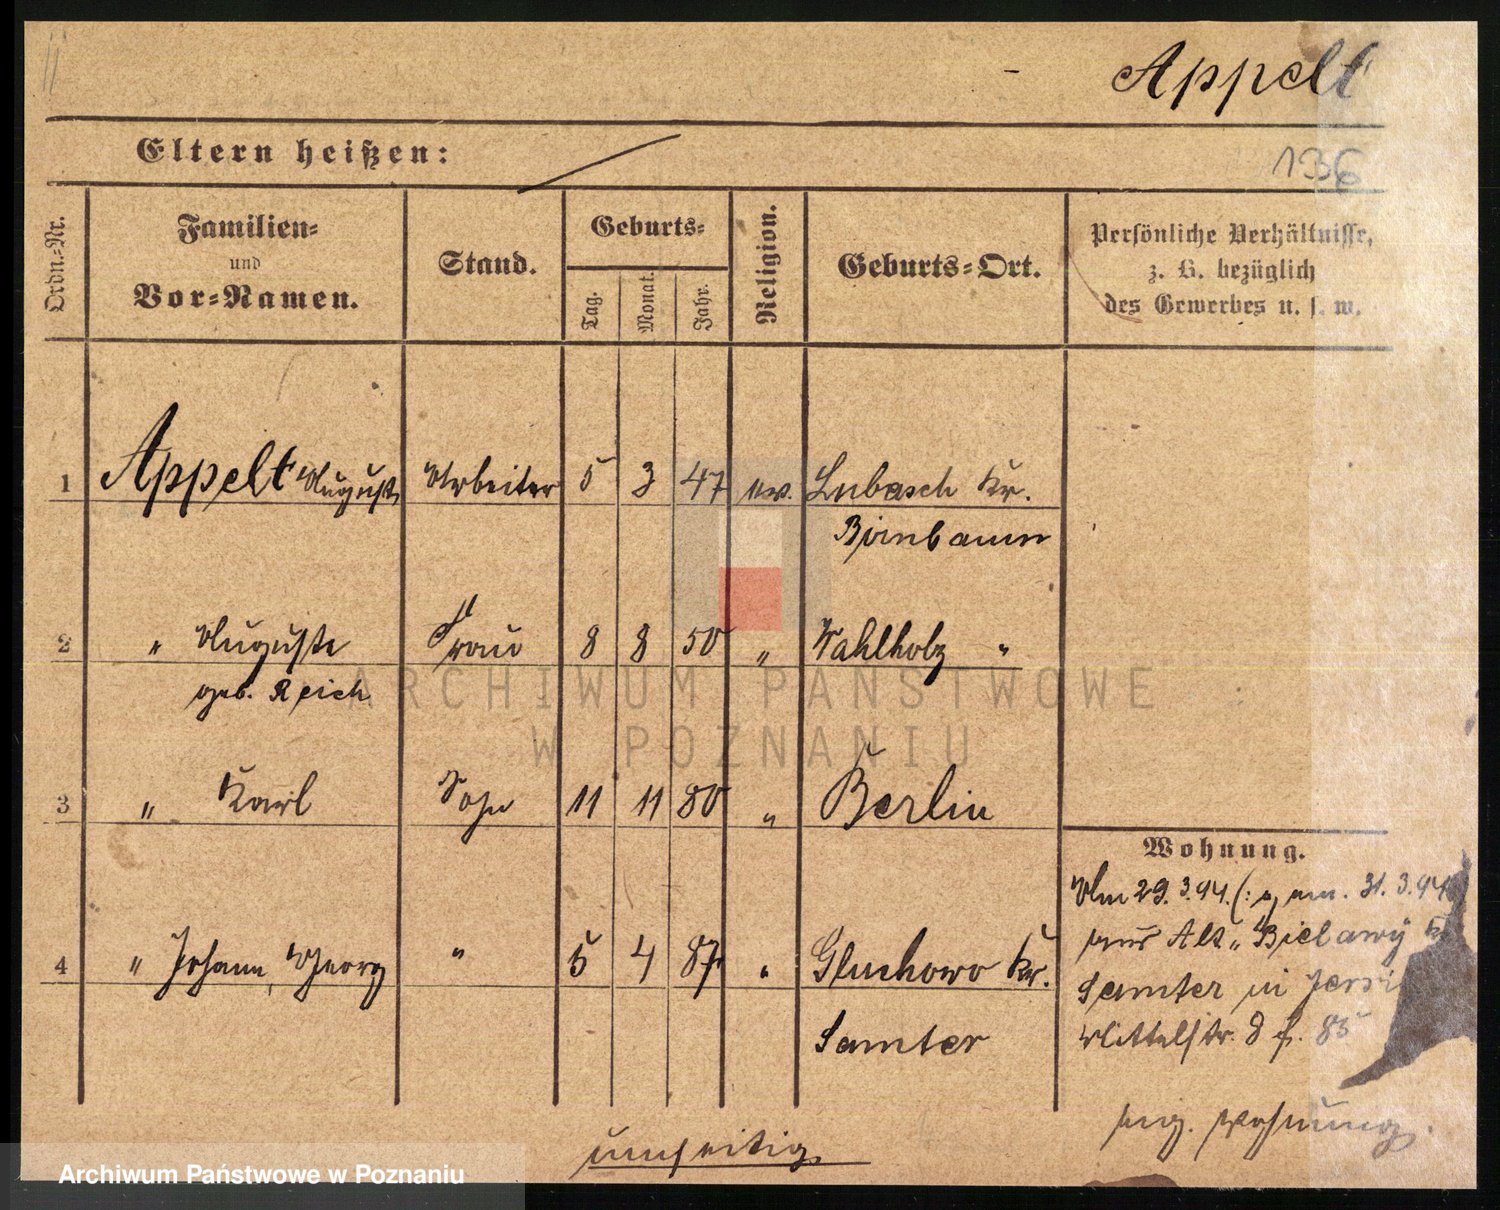 Appelt
Eltern heißen:
136
Ordn.-Nr.
Familien-
und
Vor-Namen.
Stand.
Geburts-
Tag.
Monat.
Jahr.
Religion.
Geburts-Ort.
Persönliche Verhältnisse,
z. B. bezüglich
des Gewerbes u. s. w.
1 Appelt August Arbeiter 5 3 47 ev. Lubasch Kr.
Birnbaum
2 " Auguste Frau 8 8 50 " Wahlholz "
geb. Reich
3 " Karl Sohn 11 11 80 " Berlin
4 " Johann, Georg " 5 4 87 " Gluchowo Kr.
Samter
Wohnung.
Am 29.3.94. (: g. am. 31.3.94
aus Alt „Bielawy Kr
Samter in Jersi
Mittelstr. 8 f. 85
eig. Wohnung.
umseitig
ARCHIWUM PAŃSTWOWE
W POZNANIU
Archiwum Państwowe w Poznaniu